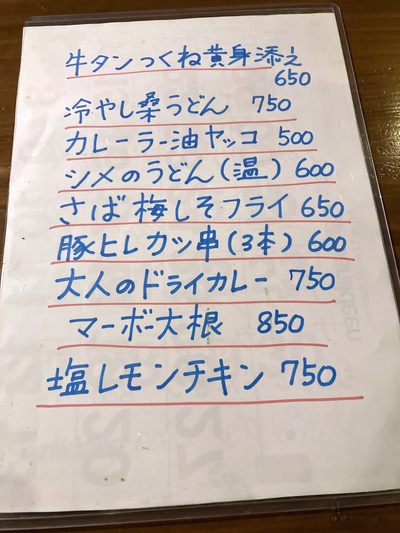 牛タンつくね黄身添え
650
冷やし桑うどん 750
カレーラー油ヤッコ 500
シメのうどん(温) 600
さば梅しそフライ 650
豚ヒレカツ串(3本) 600
大人のドライカレー 750
マーボー大根 850
塩レモンチキン 750